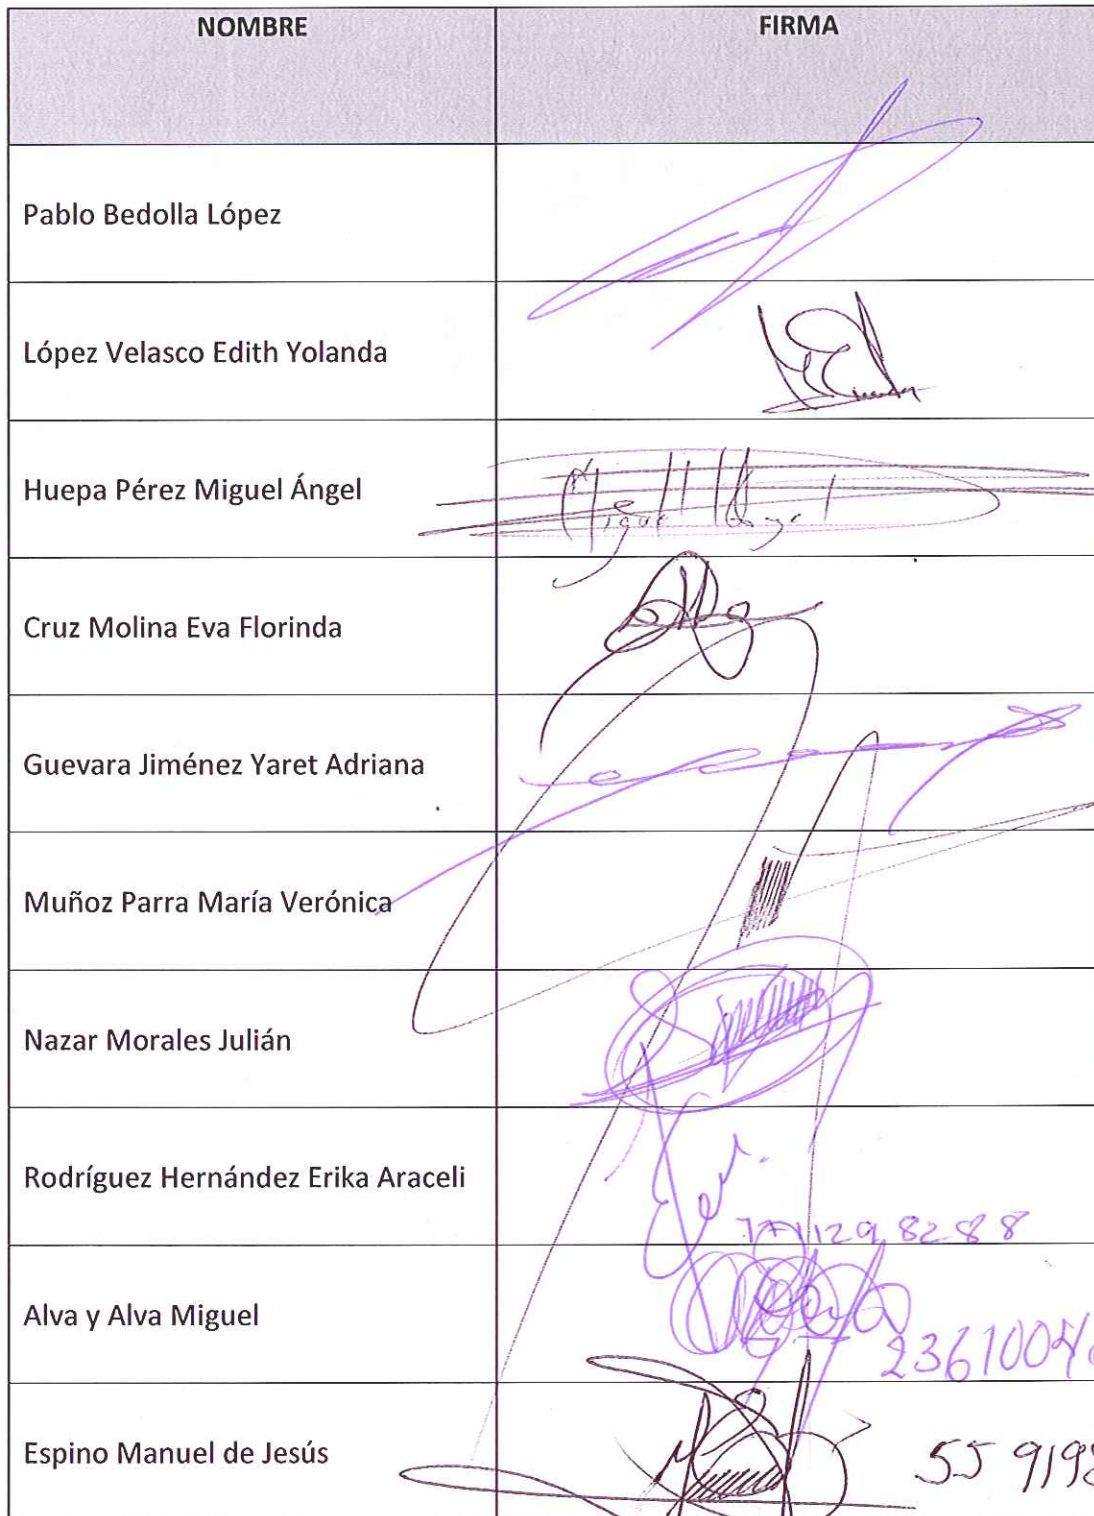 NOMBRE FIRMA
Pablo Bedolla López
López Velasco Edith Yolanda
Huepa Pérez Miguel Ángel Miguel Angel
Cruz Molina Eva Florinda
Guevara Jiménez Yaret Adriana
Muñoz Parra María Verónica
Nazar Morales Julián
Rodríguez Hernández Erika Araceli
8288
Alva y Alva Miguel
2361004
Espino Manuel de Jesús 55 919